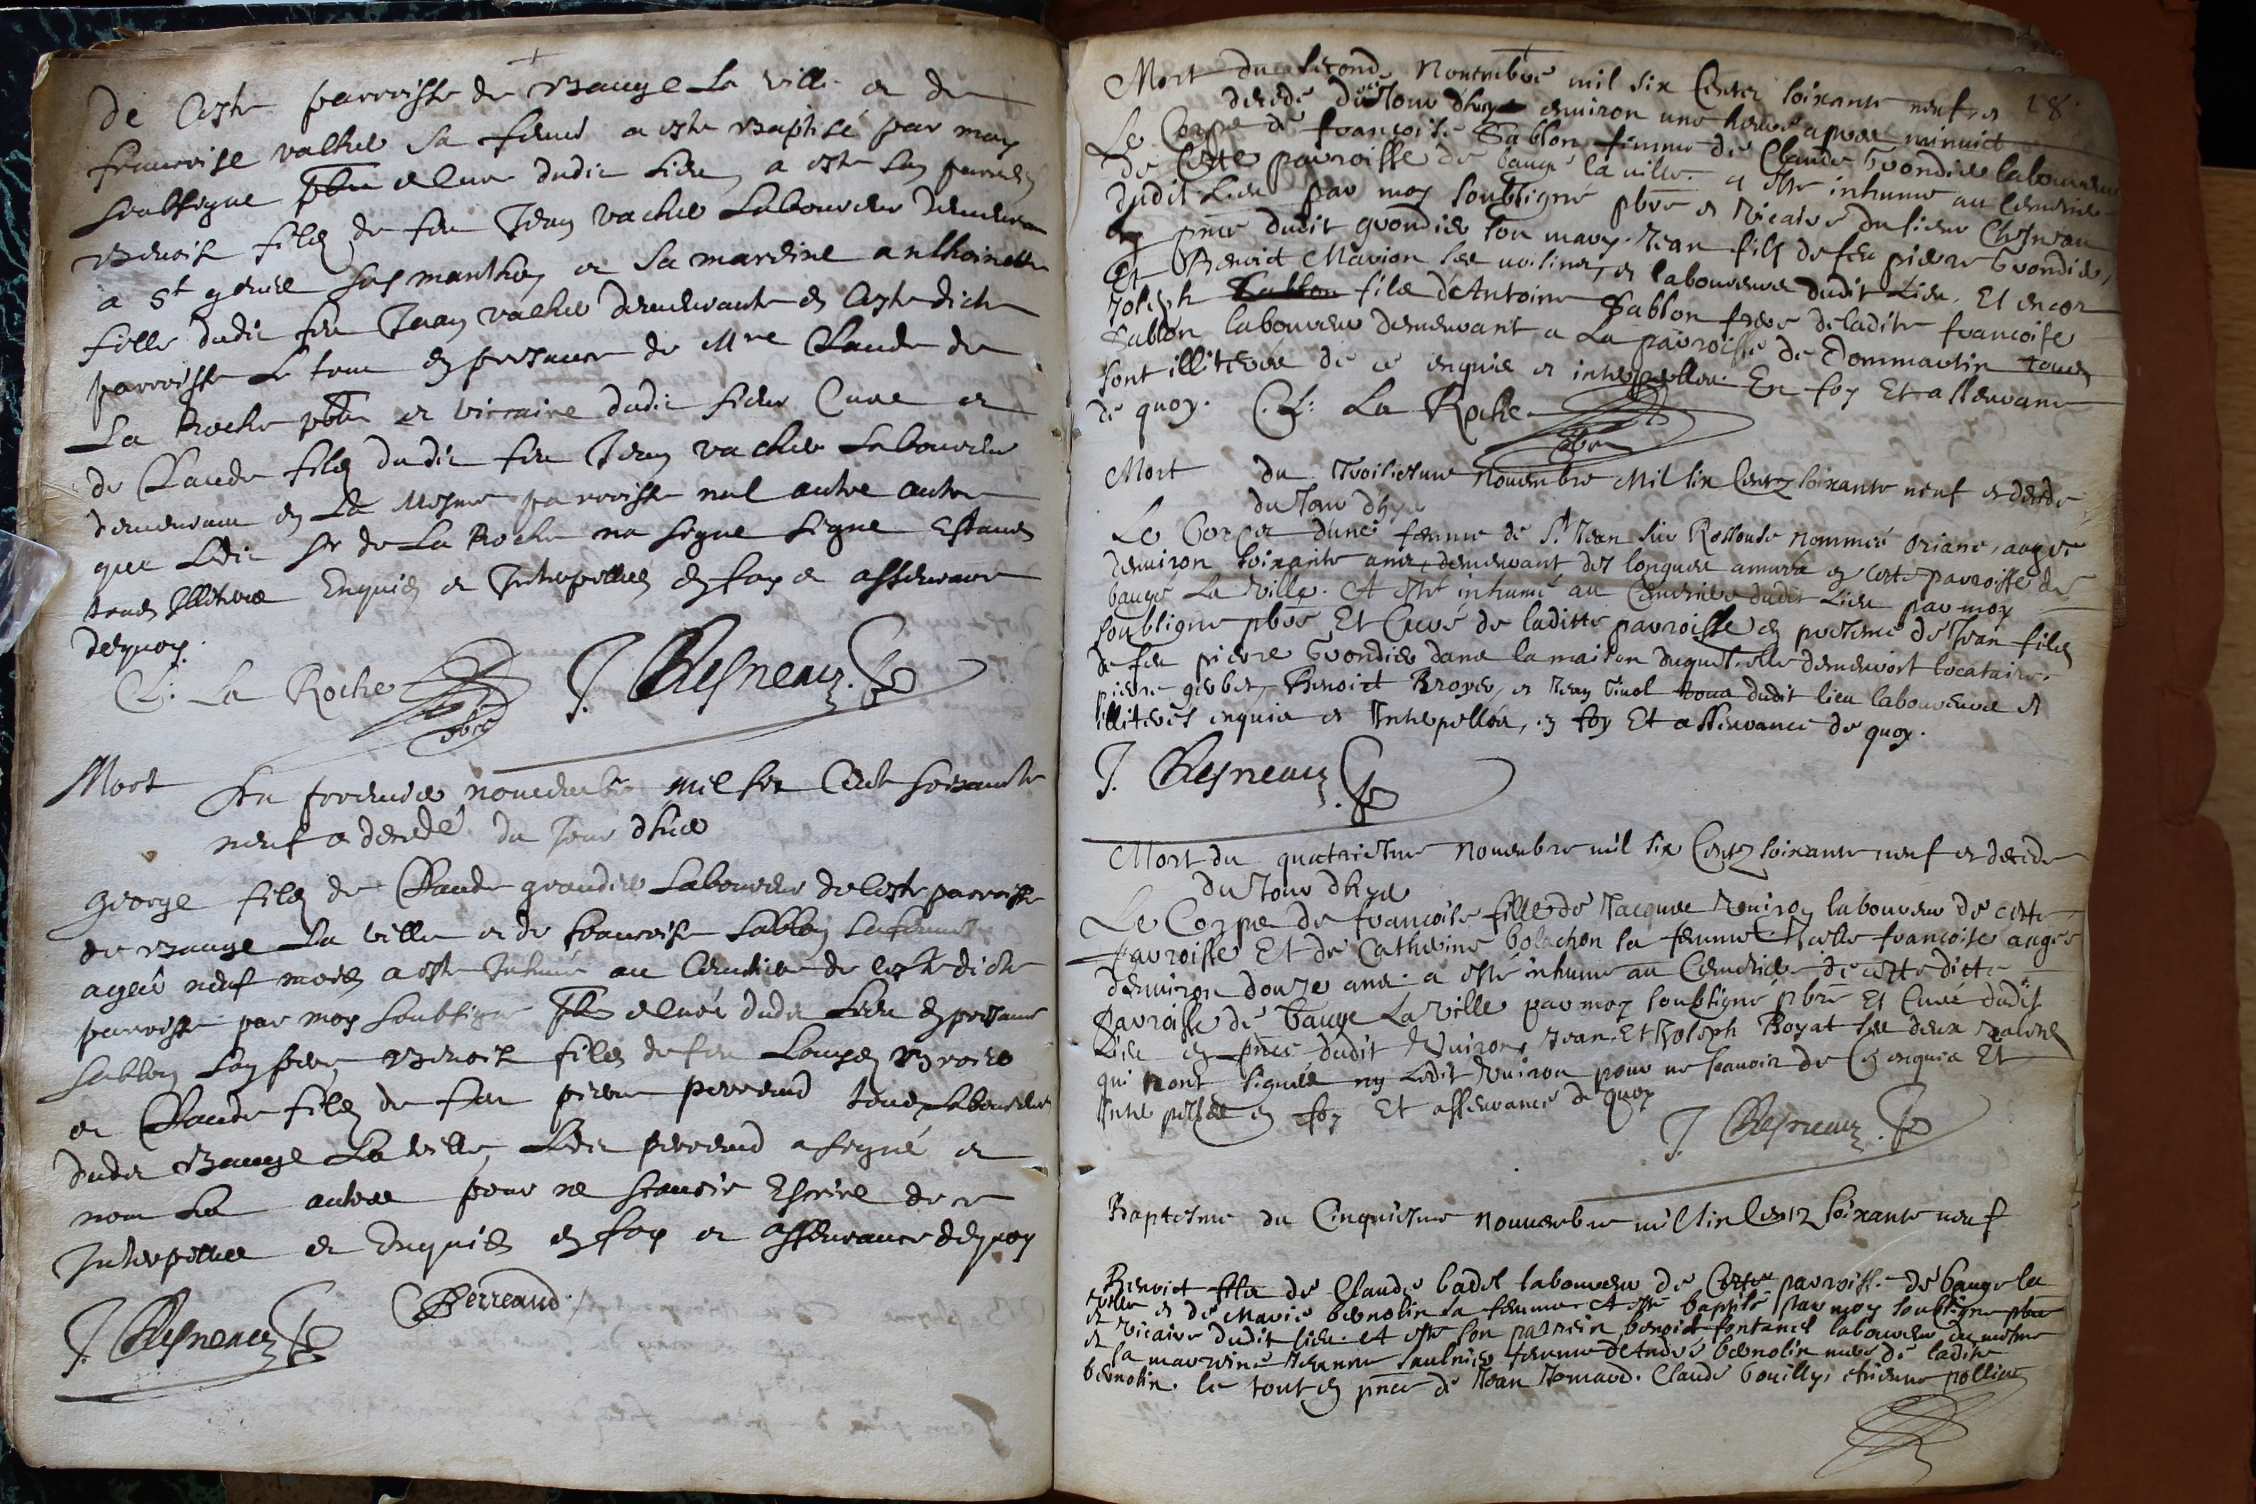 De Ceste parroisse de Bauge La ville et de
francoise vacher sa feme a este Baptisé par moy
soubsigne pbre et Cure dudit Lieu, a este son parrein
Benoist filz de feu Jean vacher Laboureur demeurant
a St genis sus manthon et sa mareine anthoinette
fille dudit feu Jean vacher demeurante en Ceste dicte
parroisse Le tout en presance de Mre Claude de
La Roche pbre et viccaire dudit sieur Cure et
de Claude filz dudit feu Jean vacher Laboureur
demeurant en La Mesme parroisse nul autre
que Ledit Sr de La Roche na signe Estans
tous Illiteres Enquis et Interpelles en foy et asseurance
dequoy.
C. La Roche pbre J. Chesneau
Mort Du premier novembre mil six Cent soixante
neuf a decede du Jour d'hier
George filz de Claude grandier Laboureur de Ceste parroisse
de Bauge La ville et de francoise Sablon sa femme
agé neuf mois a este Inhumé au Cimetiere de Ceste dicte
parroisse par moy soubsigne pbre et Curé dudit Lieu en presance
son pere, Benoist filz de feu Louys Broier
et Claude filz de feu pierre perreaud tous Laboureurs
dudit Bauge La ville, Ledit perreaud a signé et
non Les autres pour ne scavoir Escrire de ce
Interpelles et Enquis en foy et asseurance dequoy
J. Chesneau CPerreaud
18.
Mort du second Novembre mil six Centz soixante neuf, et
decede du Jour d'hyer environ une heure apres minuict
Le Corps de francoise Sablon femme de Claude Grondier laboureur
de Cette parroisse de baugé la ville. a esté inhume au Cemetiere
dudit Lieu par moy soubsigné pbre et Vicaire du sieur Chesneau
en pnce dudit grondier son mary. Jean fils de feu pierre Grondier,
Et Benoict Marion ses voisins, et laboureurs dudit Lieu. Et encor
Joseph Sablon fils d'Antoine Sablon frere de ladite francoise
Sablon laboureur demeurant a La parroisse de Dommartin tous
sont illiteres de ce enquis et interpelles. En foy Et asseurance
de quoy. C. La Roche pbre
Mort du troisiesme Novembre Mil six Centz soixante neuf et decede
du Jour d'hyer
Le Corps d'une femme de St. Jean sur Rossouse nommée Oriane, aagée
d'environ soixante ans, demeurant des longues années en Cette parroisse de
baugé La Ville. A esté inhumé au Cemetiere dudit Lieu par moy
soubsigne pbre Et Curé de laditte parroisse en presence de Jean filz
de feu pierre Grondier dans la maison duquel elle demeuroit locataire,
pierre gerbet, Benoict Broyer, et Jean Tinol tous dudit lieu laboureurs et
illiterés enquis et Interpelles, en foy Et asseurance de quoy.
J. Chesneau
Mort du quatriesme Novembre mil six Centz soixante neuf et decede
du Jour d'hyer
Le Corps de francoise fille de Jacques laboureur de cette
parroisse Et de Catherine bolachon sa femme. Icelle francoise aagée
d'environ douze ans. a esté inhume au Cemetiere de cette ditte
parroisse de bauge La Ville par moy soubsigné pbre Et Curé dudit
Lieu en pnce dudit Jean Et Joseph Royat
qui n'ont signes ny Ledit pour ne scavoir de Ce enquis Et
Interpelles en foy Et asseurance de quoy
J. Chesneau
Baptesme du Cinquiesme nouvembre mil six Centz soixante neuf
Benoict filz de Claude badel laboureur de Cette parroisse de bauge la
ville et de Marie bernolin sa femme A esté baptisé par moy soubsigne pbre
et vicaire dudit lieu. et esté son parrein benoict fontanel laboureur du mesme
et sa marreine Jeanne saulnier femme d'André bernolin mere de ladite
bernolin. le tout en pnce de Jean Claude bouilly, etienne pollier